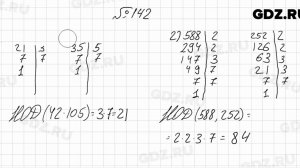 GDZ.RU
№ 142
21 | 3
7 | 7
1
35 | 5
7 | 7
1
2) 588 | 2
294 | 2
147 | 3
49 | 7
7 | 7
1
252 | 2
126 | 2
63 | 3
21 | 3
7 | 7
1
НОД (42·105) = 3·7 = 21
НОД (588, 252) =
= 2·2·3·7 = 84
GDZ.RU